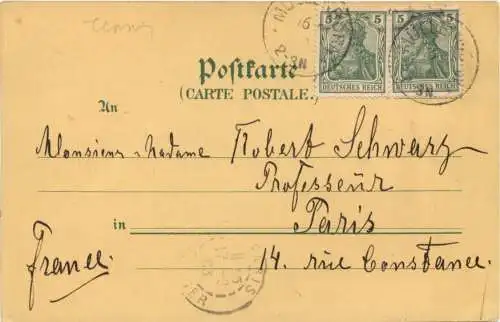 5 5
DEUTSCHES REICH DEUTSCHES REICH
Postkarte
(CARTE POSTALE.)
An
Monsieur - Madame Robert Schwarz
Professeur
in Paris
France. 14. rue Constance.